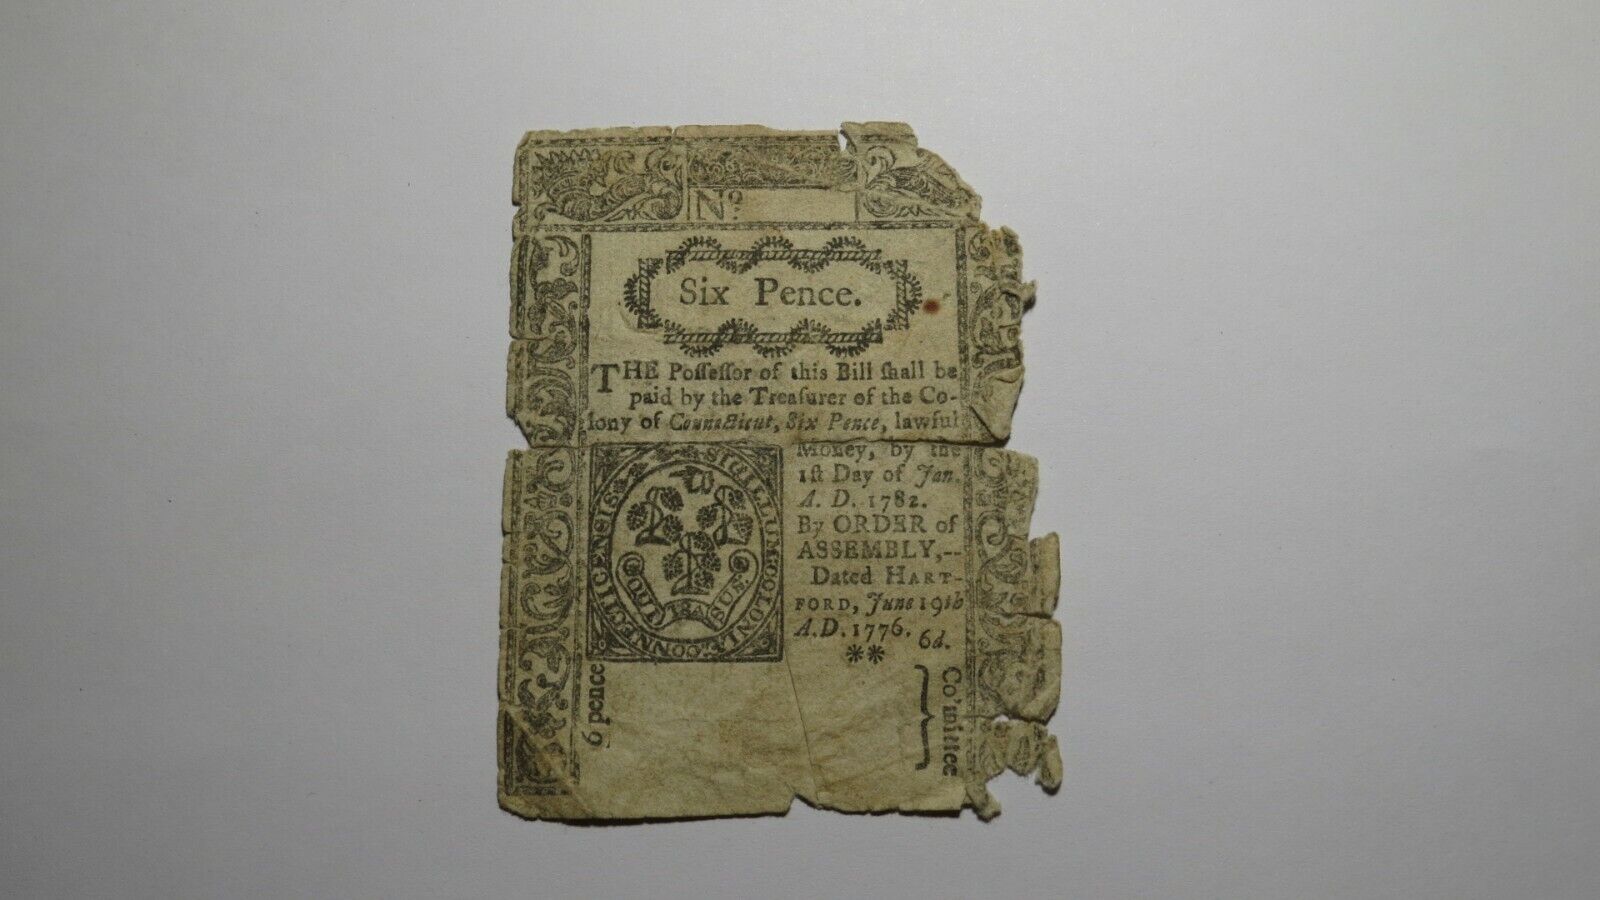 No.
Six Pence.
THE Poſſeſſor of this Bill ſhall be
paid by the Treaſurer of the Co-
lony of Connecticut, Six Pence, lawful
Money, by the
1ſt Day of Jan.
A. D. 1782.
By ORDER of
ASSEMBLY,--
Dated HART-
FORD, June 19th
A.D. 1776.
6d.
**
SIGILLUM:COLONIÆ:CONNECTICENSIS
QUI TRA SUS:
6 pence
Co'mittee